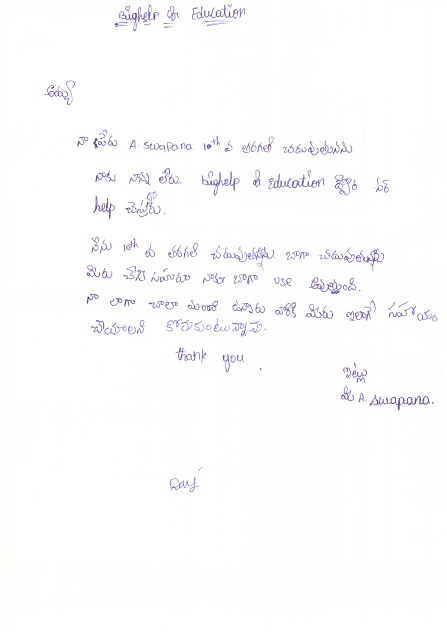 Bighelp for Education
అమ్మా
నా పేరు A. swapana 10th వ తరగతి చదువుతున్నాను
నాకు నాన్న లేరు. Bighelp of Education ద్వారా సర్
help చేస్తారు.
నేను 10th వ తరగతి చదువుతున్నాను. బాగా చదువుతున్నాను
మీరు చేసే సహాయం నాకు బాగా use అవుతుంది.
నా లాగా చాలా మంది ఉన్నారు వారికి మీరు ఇలాగే సహాయం
చేయాలని కోరుకుంటున్నాను.
thank you
ఇట్లు
మీ A. swapana.